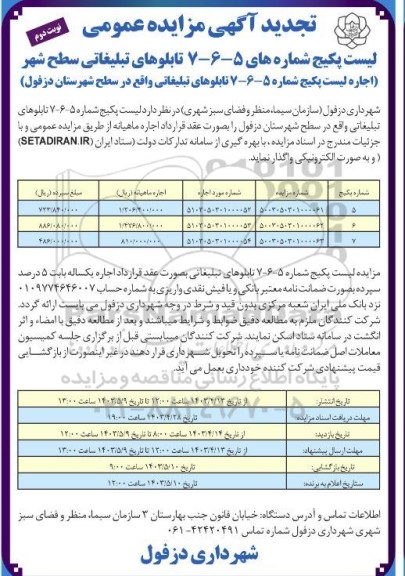 تجدید آگهی مزایده عمومی
نوبت دوم
لیست پکیج شماره های ۵-۶-۷ تابلوهای تبلیغاتی سطح شهر
(اجاره لیست پکیج شماره ۵-۶-۷ تابلوهای تبلیغاتی واقع در سطح شهرستان دزفول)
شهرداری دزفول (سازمان سیما، منظر و فضای سبز شهری) در نظر دارد لیست پکیج شماره ۵-۶-۷ تابلوهای
تبلیغاتی واقع در سطح شهرستان دزفول را بصورت عقد قرارداد اجاره ماهیانه از طریق مزایده عمومی و با
جزئیات مندرج در اسناد مزایده، با بهره گیری از سامانه تدارکات دولت (ستاد ایران (SETADIRAN.IR)
) و به صورت الکترونیکی واگذار نماید.
شماره پکیج شماره مزایده شماره مورد اجاره اجاره ماهیانه (ریال) مبلغ سپرده (ریال)
۵ ۵۰۰۳۰۵۰۳۰۱۰۰۰۰۶۱ ۵۱۰۳۰۵۰۳۰۱۰۰۰۰۵۲ ۱/۲۰۶/۴۰۰/۰۰۰ ۷۲۳/۸۴۰/۰۰۰
۶ ۵۰۰۳۰۵۰۳۰۱۰۰۰۰۶۲ ۵۱۰۳۰۵۰۳۰۱۰۰۰۰۵۳ ۱/۴۷۶/۸۰۰/۰۰۰ ۸۸۶/۰۸۰/۰۰۰
۷ ۵۰۰۳۰۵۰۳۰۱۰۰۰۰۶۳ ۵۱۰۳۰۵۰۳۰۱۰۰۰۰۵۴ ۸۱۰/۰۰۰/۰۰۰ ۴۸۶/۰۰۰/۰۰۰
مزایده لیست پکیج شماره ۵-۶-۷ تابلوهای تبلیغاتی بصورت عقد قرارداد اجاره یکساله بابت ۵ درصد
سپرده بصورت ضمانت نامه معتبر بانکی و یا فیش نقدی واریزی به شماره حساب ۰۱۰۹۷۷۴۶۴۶۰۰۷
نزد بانک ملی ایران شعبه مرکزی بدون قید و شرط در وجه شهرداری دزفول می بایست ارائه گردد.
شرکت کنندگان ملزم به مطالعه دقیق ضوابط و شرایط میباشند و بعد از مطالعه دقیق با امضاء و اثر
انگشت در سامانه ستاد اسکن نمایند. شرکت کنندگان میبایستی قبل از برگزاری جلسه کمیسیون
معاملات اصل ضمانت نامه یا سپرده را تحویل شهرداری قرار دهند در غیر اینصورت از بازگشایی
قیمت پیشنهادی شرکت کننده خودداری بعمل می آید.
پایگاه اطلاع رسانی مناقصه و مزایده
تاریخ انتشار: از تاریخ ۱۴۰۳/۴/۱۳ ساعت ۱۲:۰۰ تا تاریخ ۱۴۰۳/۵/۹ ساعت ۱۳:۰۰
مهلت دریافت اسناد مزایده: تاریخ ۱۴۰۳/۴/۲۸ ساعت ۱۹:۰۰
تاریخ بازدید: از تاریخ ۱۴۰۳/۴/۱۴ ساعت ۸:۰۰ تا تاریخ ۱۴۰۳/۵/۹ ساعت ۱۲:۰۰
مهلت ارسال پیشنهاد: از تاریخ ۱۴۰۳/۴/۱۳ ساعت ۱۲:۰۰ تا تاریخ ۱۴۰۳/۵/۹ ساعت ۱۳:۰۰
تاریخ بازگشایی: تاریخ ۱۴۰۳/۵/۱۰ ساعت ۹:۰۰
ساریخ اعلام به برنده: تاریخ ۱۴۰۳/۵/۱۰ ساعت ۱۲:۰۰
اطلاعات تماس و آدرس دستگاه: خیابان قانون جنب بهارستان ۳ سازمان سیما، منظر و فضای سبز
شهری شهرداری دزفول شماره تماس ۴۲۴۲۰۴۹۱-۰۶۱
شهرداری دزفول